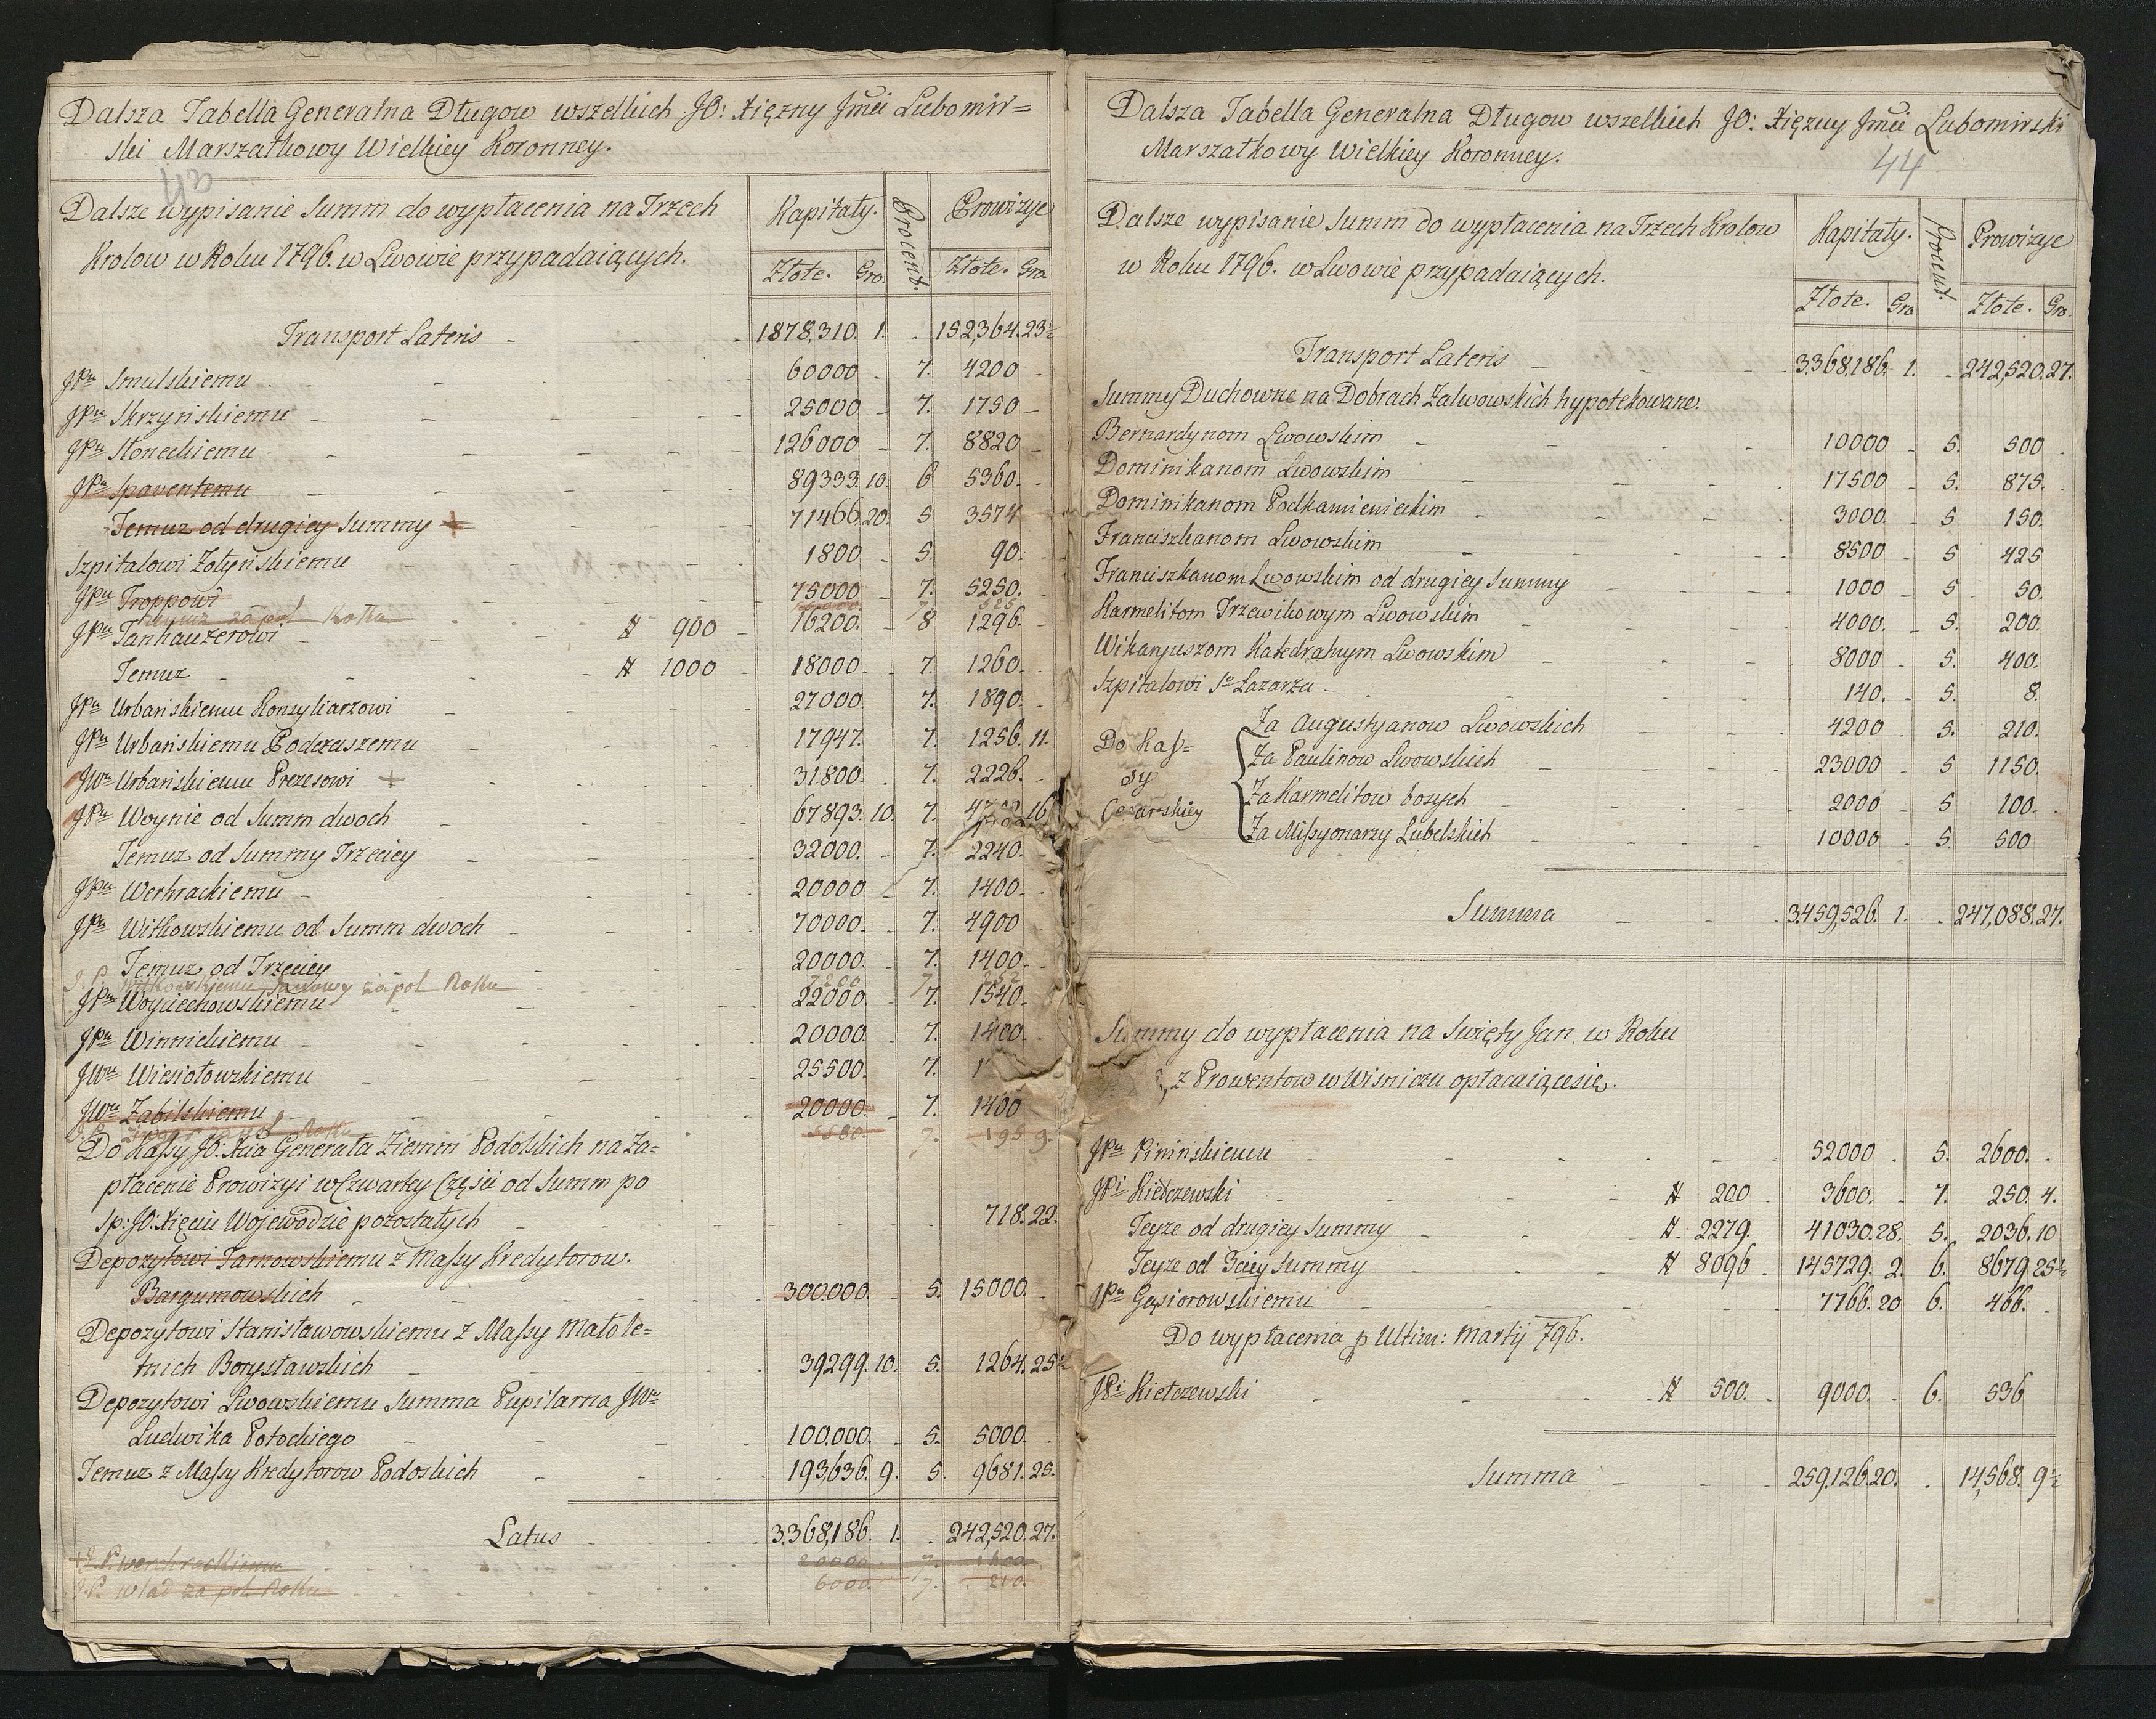 Dalsza Tabella Generalna Długow wszelkich JO: Xiężny Jmći Lubomir=
ski Marszałkowy Wielkiey Koronney.
Dalsze wypisanie Summ do wypłacenia na Trzech
Krolow w Roku 1796. w Lwowie przypadaiących.
Kapitały. Procent. Prowizye
Złote. Gro. Złote. Gro.
Transport Lateris - 1878,310. 1. - 152,364. 23½
JPu Smulskiemu - 60000 - 7. 4200 -
JPu Skrzyńskiemu - 25000 - 7. 1750 -
JPu Stoneckiemu - 126000 - 7. 8820 -
JPu Spaventemu - 89333. 10. 6 5360. -
Temuz od drugiey Summy + - 71466. 20. 5 3574
Szpitalowi Zołyńskiemu - 1800 - 5. 90. -
JPu Troppowi - 75000 - 7. 5250. -
za poł Roku
JPu Tanhauzerowi - # 900 - 16200. - 8 1296. -
Temuz - # 1000 - 18000. - 7. 1260. -
JPu Urbańskiemu Konsyliarzowi - 27000. 7. 1890.
JPu Urbańskiemu Podczaszemu - 17947. 7. 1256. 11.
JWu Urbańskiemu Prezesowi + - 31.800. 7. 2226. -
JPu Woynie od Summ dwoch - 67893. 10. 7. 16
Temuz od Summy Trzeciey - 32000. - 7. 2240.
JPu Werhrackiemu - 20000 7. 1400. -
JPu Witkowskiemu od Summ dwoch - 70000. - 7. 4900
Temuz od Trzeciey - 20000. - 7. 1400. -
za poł Roku 7200 7. 252
JPu Woyciechowskiemu - 22000. 7. 1540.
JPu Winnickiemu - 20000. 7. 1400.
JWu Wiesiołowskiemu - 25500. 7.
JWu Zabilskiemu - 20000. - 7. 1400
za poł Roku 5580. 7. 195 9.
Do Kassy JO: Xcia Generała Ziemm Podolskich na Za=
płacenie Prowizyi w Czwartey Części od Summ po
Sp: JO: Xięciu Wojewodzie pozostałych - 718. 22.
Depozytowi Tarnowskiemu z Massy Kredytorow.
Bargumowskich - 300.000. - 5. 15000. -
Depozytowi Stanisławowskiemu z Massy Małole=
tnich Borysławskich - 39299. 10. 5. 1264. 25½
Depozytowi Lwowskiemu Summa Pupilarna JWu
Ludwika Potockiego - 100.000. - 5. 5000.
Temuz z Massy Kredytorow Podoskich - 193,636. 9. 5. 9681. 25.
Latus - 3.368,186. 1. - 242,520. 27.
+ J. P. werchrackiemu - 20000. 7. 1400.
J. P. wład za poł Roku - 6000. 7. 210.
Dalsza Tabella Generalna Długow wszelkich JO: Xiężny Jmći Lubomirski
Marszałkowy Wielkiey Koronney.
44
Dalsze wypisanie Summ do wypłacenia na Trzech Krolow
w Roku 1796. w Lwowie przypadaiących.
Kapitały. Procent. Prowizye
Złote. Gro. Złote. Gro.
Transport Lateris - 3.368,186. 1. - 242,520. 27.
Summy Duchowne na Dobrach Zalwowskich hypotekowane.
Bernardynom Lwowskim - 10000 - 5. 500
Dominikanom Lwowskim - 17500 - 5. 875.
Dominikanom Podkamienieckim - 3000. - 5 150.
Franciszkanom Lwowskim - 8500 - 5 425
Franciszkanom Lwowskim od drugiey Summy - 1000 - 5 50.
Karmelitom Trzewikowym Lwowskim - 4000. - 5. 200.
Wikaryuszom Katedralnym Lwowskim - 8000 - 5. 400.
Szpitalowi So Lazarza - 140. - 5. 8.
Do Kas=
sy
Cesarskiey
Za Augustyanow Lwowskich - 4200 - 5. 210.
Za Paulinow Lwowskich - 23000 - 5 1150.
Za Karmelitow bosych - 2000 - 5 100.
Za Missyonarzy Lubelskich - 10000 - 5. 500
Summa - 3.459,526. 1. - 247,088. 27.
Summy do wypłacenia na Swięty Jan w Roku
z Prowentow w Wisniczu opłacaiącesie.
JPu Pinińskiemu - 52000 - 5. 2600. -
JPi Kiełczewski - # 200 - 3600. - 7. 250. 4.
Teyze od drugiey Summy - # 2279. 41030. 28. 5. 2036. 10
Teyze od 3ciey Summy - # 8096 - 145729. 2. 6. 8679. 25½
JPu Gąsiorowskiemu - 7766. 20 6. 466. -
Do wypłacenia p Ultim: Martij 796.
JPi Kiełczewski - # 500. - 9000. - 6. 536
Summa - 259.126. 20. - 14,568. 9½